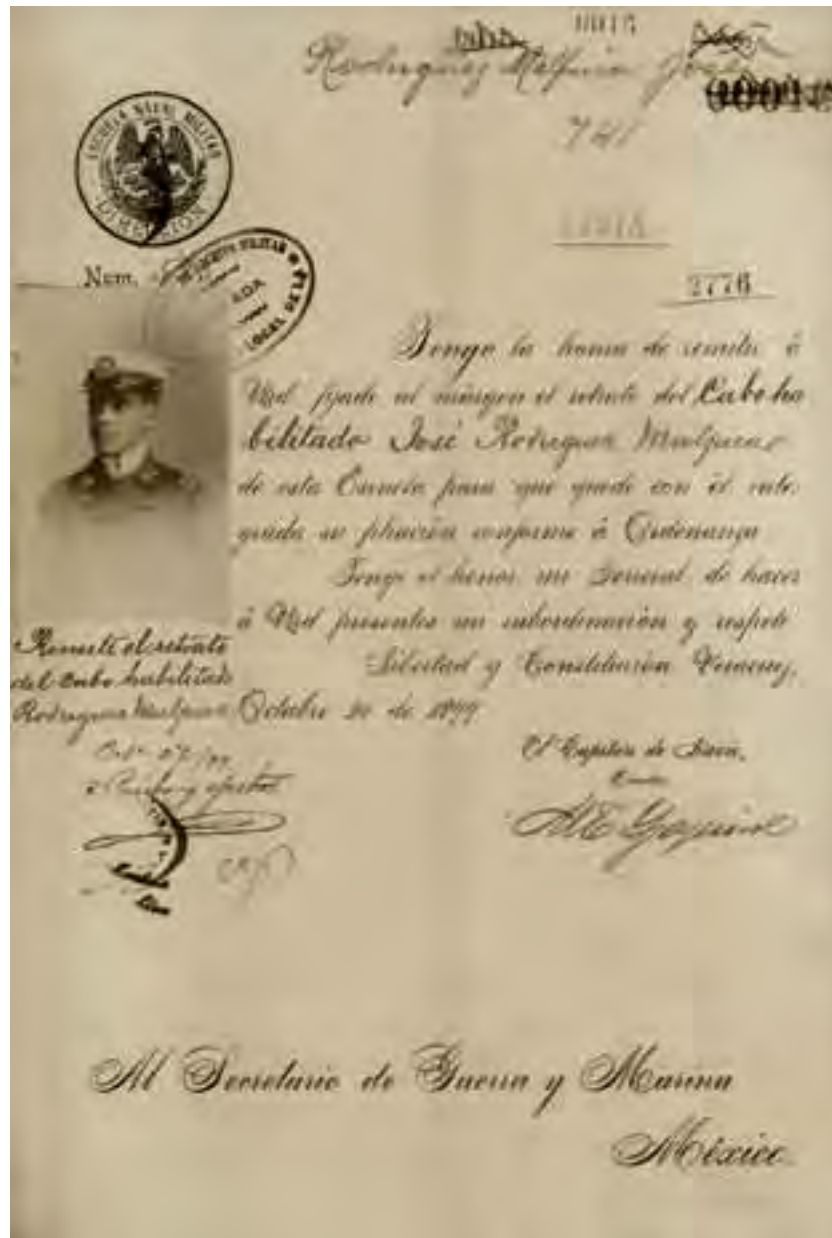 Rodriguez Malpica José
741
ESCUELA NAVAL MILITAR
DIRECCION
Num.
MILITAR
LOCAL
2776
Tengo la honra de remitir á
Ud fijado al márgen el retrato del Cabo ha
bilitado José Rodriguez Malpica
de esta Escuela para que quede con él inte
grada su filiación conforme á Ordenanza
Tengo el honor, mi General, de hacer
á Ud presentes mi subordinación y respeto
Libertad y Constitución Veracruz,
Octubre de 1899
Remite el retrato
del Cabo habilitado
Rodriguez Malpica
El Capitan de Navío,
Al Secretario de Guerra y Marina
México.